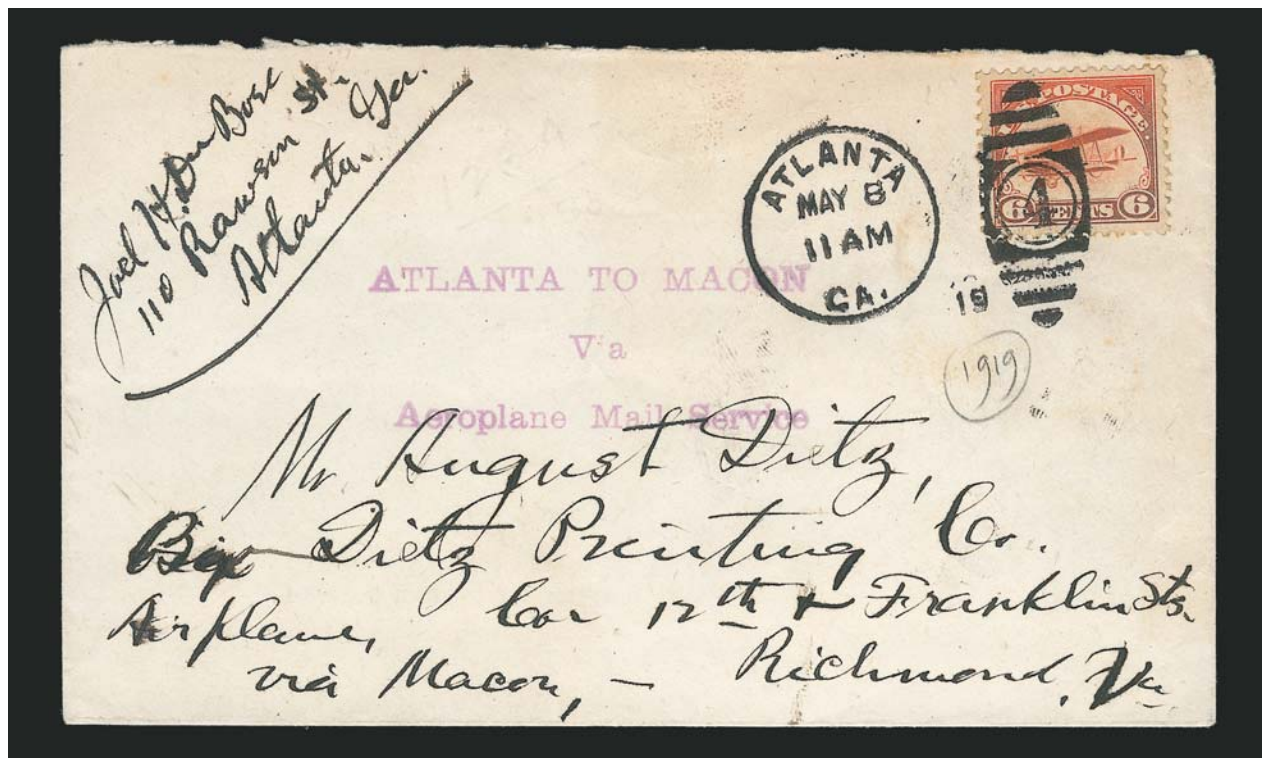 Joel H. Du Bose
110 Rawson St.
Atlanta, Ga.
ATLANTA
MAY 8
11 AM
GA.
19
4
U.S. POSTAGE.
6 CENTS 6
1919
ATLANTA TO MACON
V a
Aeroplane Mail Service
Mr August Dietz,
Dietz Printing Co.
Cor 12th & Franklin Sts.
Richmond, Va
By
Airplane,
via Macon, –